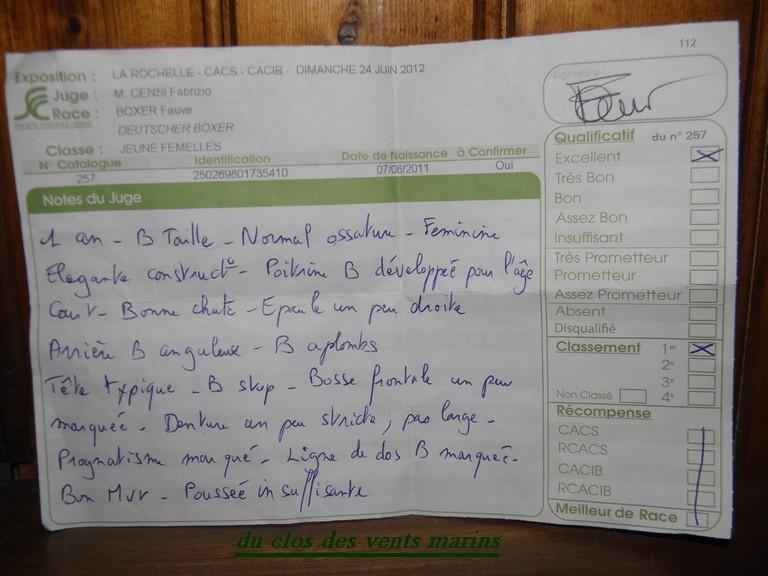 112
Exposition : LA ROCHELLE - CACS - CACIB - DIMANCHE 24 JUIN 2012
Juge : M. CENSI Fabrizio
Race : BOXER Fauve
DEUTSCHER BOXER
Classe : JEUNE FEMELLES
N° Catalogue Identification Date de Naissance à Confirmer
257 250269801735410 07/06/2011 Oui
Notes du Juge
1 an - B Taille - Normal ossature - Feminine
Elegante construct° - Poitrine B développée pour l'âge
Court - Bonne chute - Epaule un peu droite
Arrière B anguleux - B aplombs
Tête typique - B stop - Bosse frontale un peu
marquée - Denture un peu stricte, pas large -
Prognatisme marqué - Ligne de dos B marquée -
Bon Mvt - Poussée insuffisante
Signature
Qualificatif du n° 257
Excellent
Très Bon
Bon
Assez Bon
Insuffisant
Très Prometteur
Prometteur
Assez Prometteur
Absent
Disqualifié
Classement 1er
2e
3e
Non Classé 4e
Récompense
CACS
RCACS
CACIB
RCACIB
Meilleur de Race
du clos des vents marins